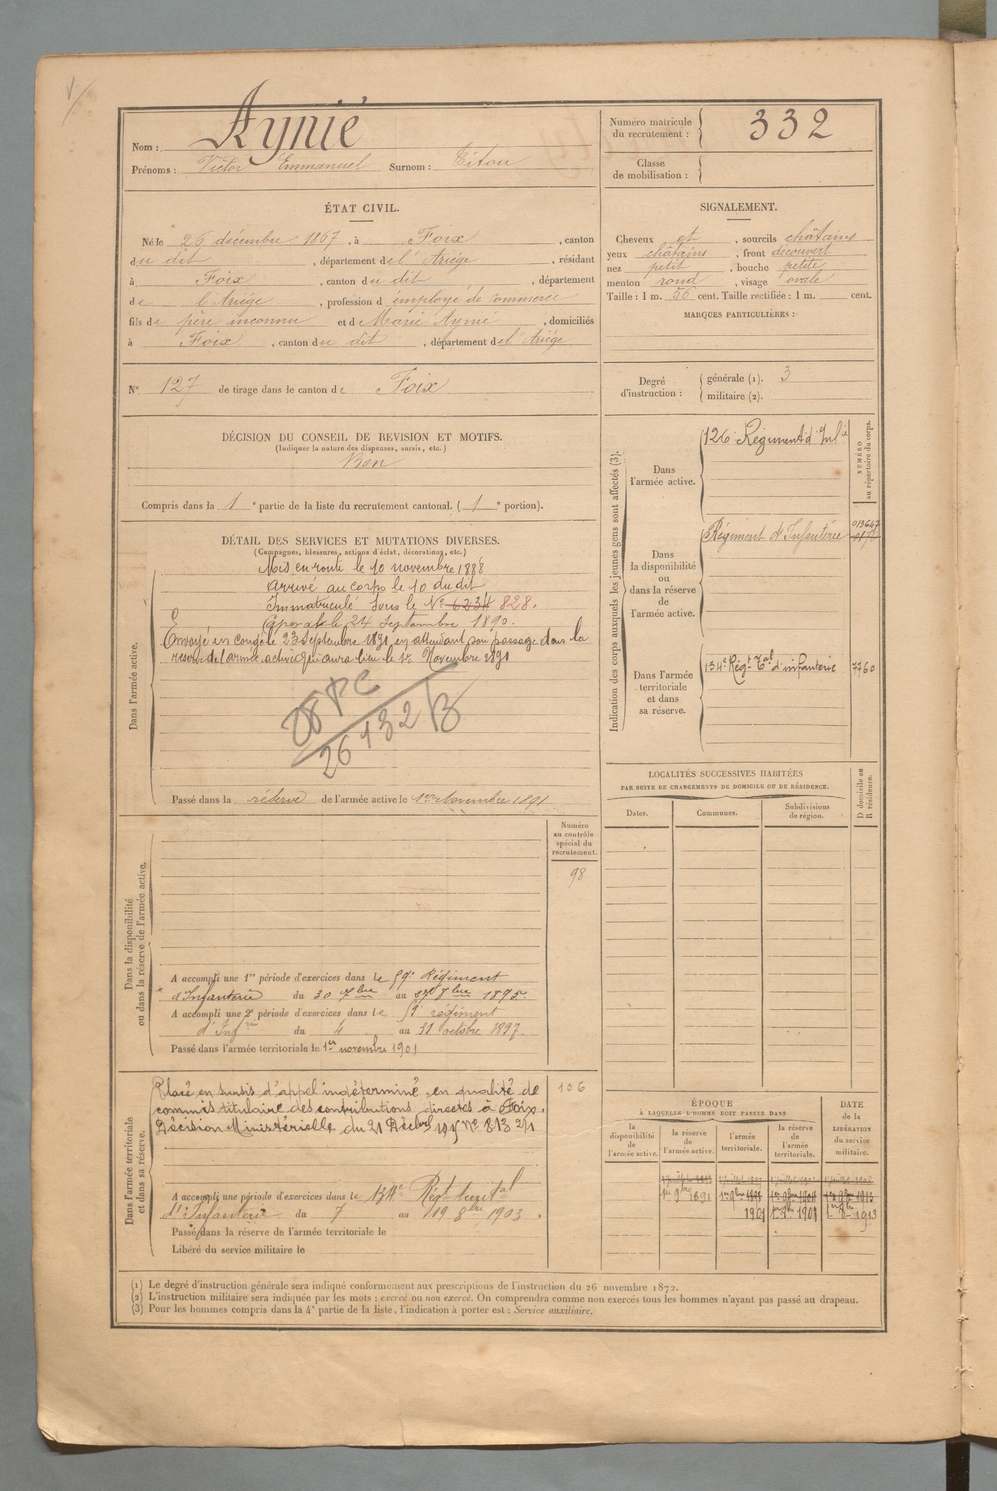 Nom : Aynié
Prénoms : Victor Emmanuel Surnom : Titou
Numéro matricule
du recrutement : 332
Classe
de mobilisation :
ÉTAT CIVIL.
Né le 26 décembre 1867, à Foix, canton
du dit, département de l'Ariège, résidant
à Foix, canton du dit, département
de l'Ariège, profession d'employé de commerce
fils de père inconnu et de Marie Aynié, domiciliés
à Foix, canton du dit, département de l'Ariège
N° 127 de tirage dans le canton de Foix
SIGNALEMENT.
Cheveux et, sourcils châtains
yeux châtains, front découvert
nez petit, bouche petite
menton rond, visage ovale
Taille : 1 m. 56 cent. Taille rectifiée : 1 m. cent.
MARQUES PARTICULIÈRES :
Degré
d'instruction :
générale (1). 3
militaire (2).
DÉCISION DU CONSEIL DE REVISION ET MOTIFS.
(Indiquer la nature des dispenses, sursis, etc.)
Bon
Compris dans la 1e partie de la liste du recrutement cantonal. (1e portion).
DÉTAIL DES SERVICES ET MUTATIONS DIVERSES.
(Campagnes, blessures, actions d'éclat, décorations, etc.)
Dans l'armée active.
Mis en route le 10 novembre 1888
Arrivé au corps le 10 du dit
Immatriculé sous le N° 6234 828.
Caporal le 24 Septembre 1890.
Envoyé en congé le 23 Septembre 1891, en attendant son passage dans la
réserve de l'armée active qui aura lieu le 1er Novembre 1891
26132 B
Passé dans la réserve de l'armée active le 1er Novembre 1891
Indication des corps auxquels les jeunes gens sont affectés (3).
NUMÉRO
au répertoire du corps.
Dans
l'armée active.
126 Régiment d'Inf ie
Dans
la disponibilité
ou
dans la réserve
de
l'armée active.
Régiment d'Infanterie
Dans l'armée
territoriale
et dans
sa réserve.
134e Régt Tal d'infanterie 7760
LOCALITÉS SUCCESSIVES HABITÉES
PAR SUITE DE CHANGEMENTS DE DOMICILE OU DE RÉSIDENCE.
Dates. Communes. Subdivisions
de région.
D domicile ou
R résidence.
Dans la disponibilité
ou dans la réserve de l'armée active.
Numéro
au contrôle
spécial du
recrutement.
98
A accompli une 1re période d'exercices dans le 59e Régiment
d'Infanterie du 30 7bre au 27 8bre 1895.
A accompli une 2e période d'exercices dans le 59 régiment
d'Inf rie du 4 au 31 octobre 1897.
Passé dans l'armée territoriale le 1er novembre 1901
Dans l'armée territoriale
et dans sa réserve.
106
Placé en sursis d'appel indéterminé, en qualité de
commis titulaire des contributions directes à Foix.
Décision Ministérielle du 21 Décbre N° 813 2/1
A accompli une période d'exercices dans le 134e Régt territal
d'Infanterie du 7 au 19 8bre 1903.
Passé dans la réserve de l'armée territoriale le
Libéré du service militaire le
ÉPOQUE
À LAQUELLE L'HOMME DOIT PASSER DANS
la
disponibilité
de
l'armée active.
la réserve
de
l'armée active.
l'armée
territoriale.
la réserve
de
l'armée
territoriale.
DATE
de la
LIBÉRATION
du service
militaire.
1er 9bre 1891
1901
(1) Le degré d'instruction générale sera indiqué conformément aux prescriptions de l'instruction du 26 novembre 1872.
(2) L'instruction militaire sera indiquée par les mots : exercé ou non exercé. On comprendra comme non exercés tous les hommes n'ayant pas passé au drapeau.
(3) Pour les hommes compris dans la 4e partie de la liste, l'indication à porter est : Service auxiliaire.